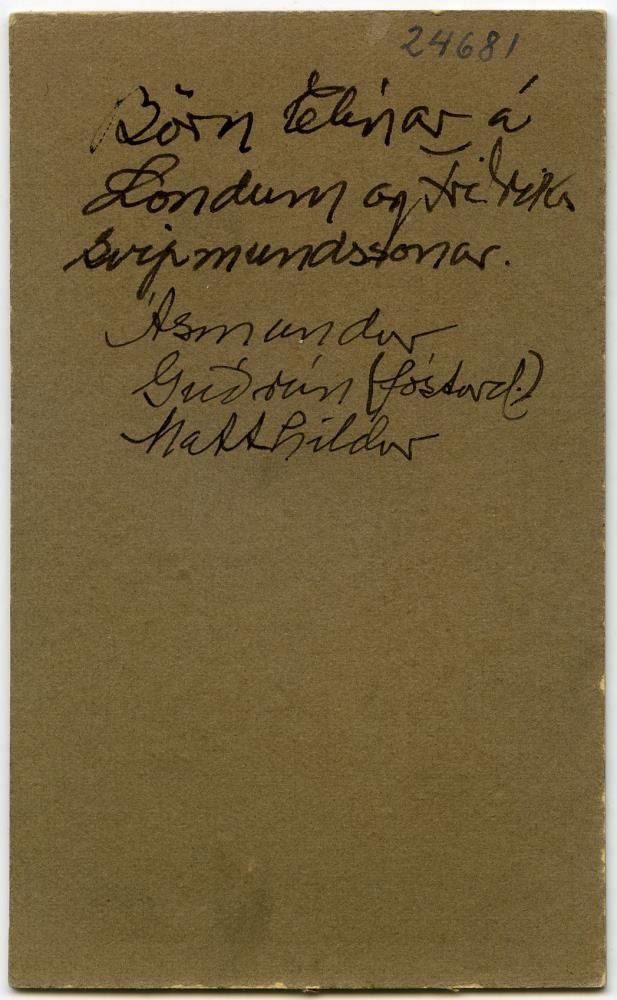 24681
Börn Elínar á
Löndum og Friðriks
Svipmundssonar.
Ásmundur
Guðrún (fósturd.)
Matthildur